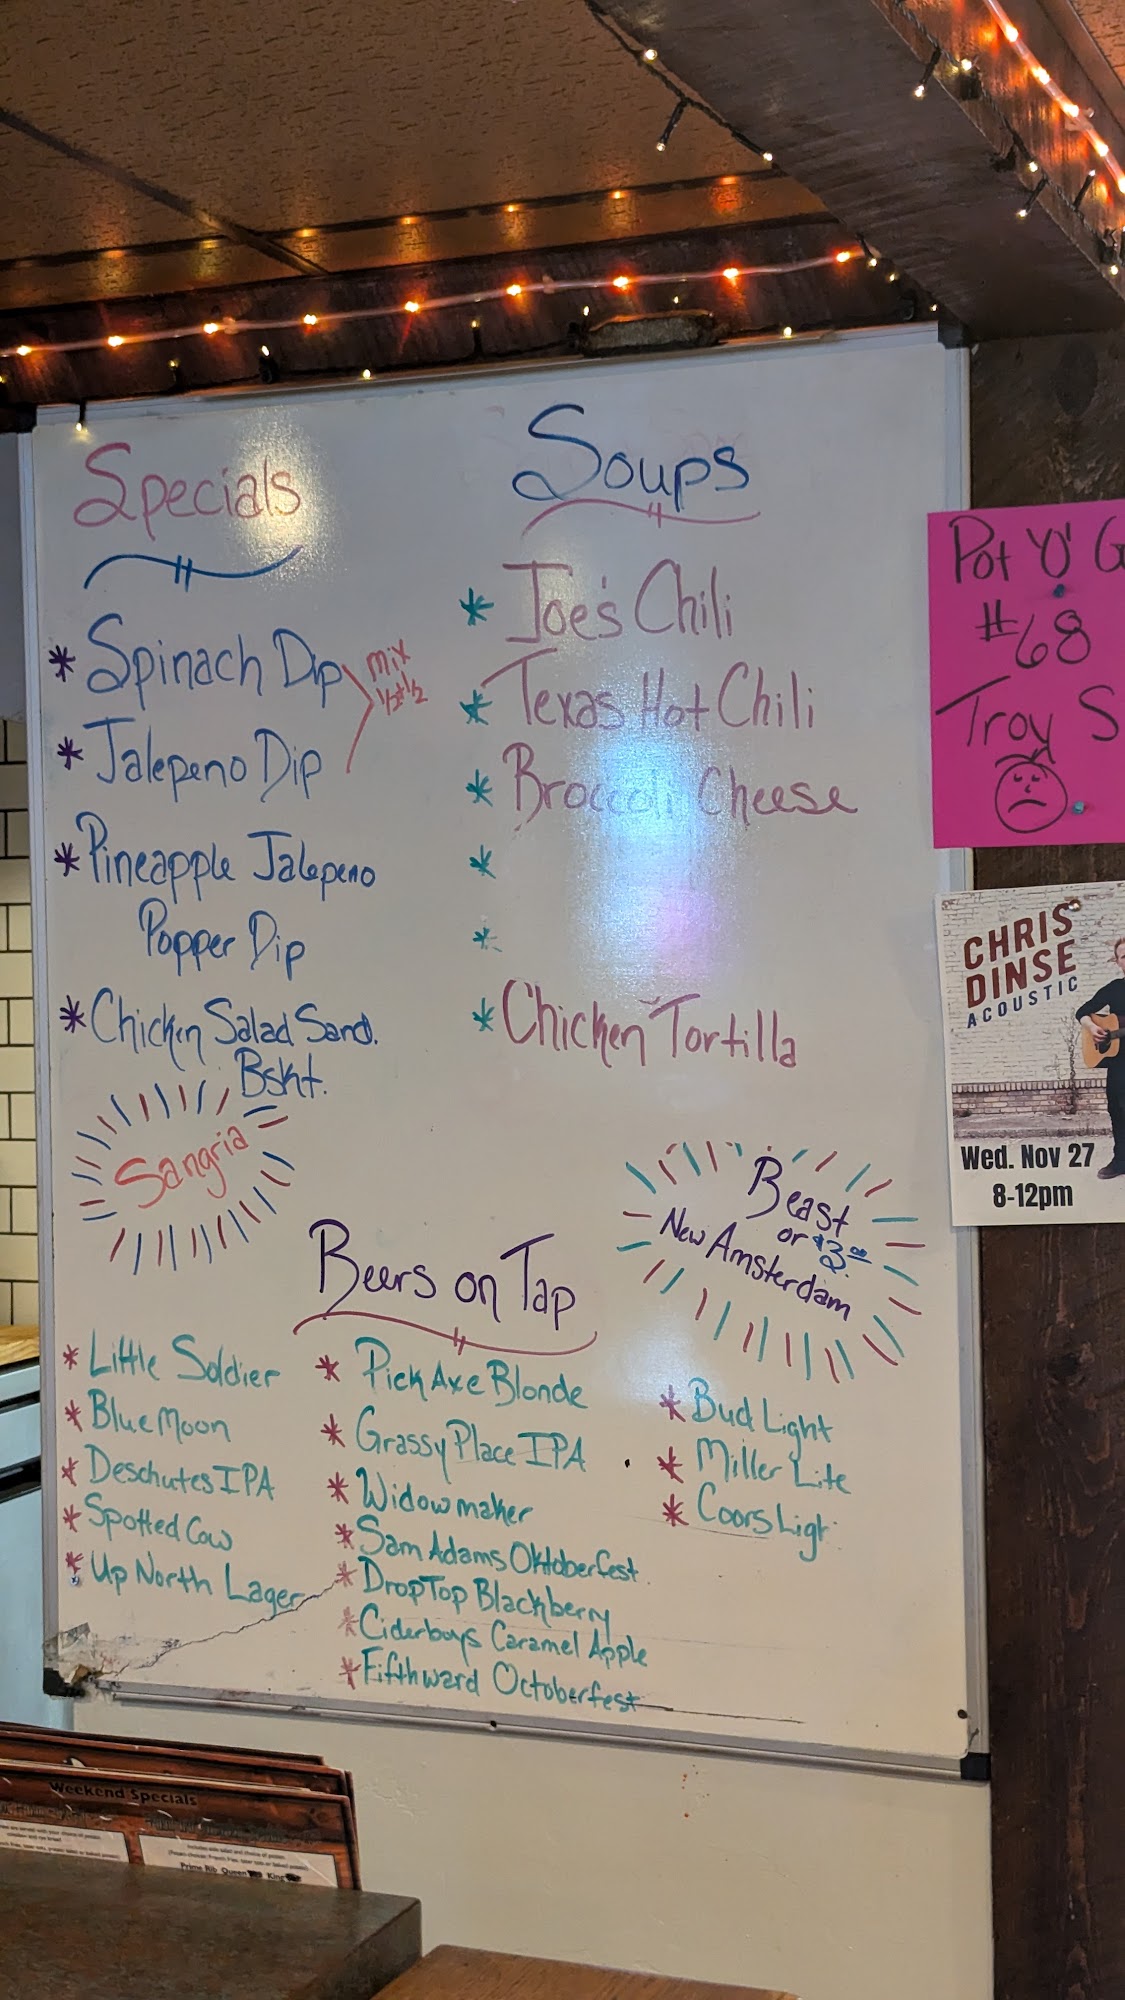 Specials
* Spinach Dip
mix
1/2 + 1/2
* Jalepeno Dip
* Pineapple Jalepeno
Popper Dip
* Chicken Salad Sand.
Bskt.
Sangria
Soups
* Joe's Chili
* Texas Hot Chili
* Broccoli Cheese
*
*
* Chicken Tortilla
Beast
or $3.00
New Amsterdam
Beers on Tap
* Little Soldier
* Blue Moon
* Deschutes IPA
* Spotted Cow
* Up North Lager
* Pick Axe Blonde
* Grassy Place IPA
* Widowmaker
* Sam Adams Oktoberfest
* Drop Top Blackberry
* Ciderboys Caramel Apple
* Fifthward Octoberfest
* Bud Light
* Miller Lite
* Coors Ligt
Pot 'O' G
#68
Troy S
CHRIS
DINSE
ACOUSTIC
Wed. Nov 27
8-12pm
Weekend Specials
Prime Rib Queen King